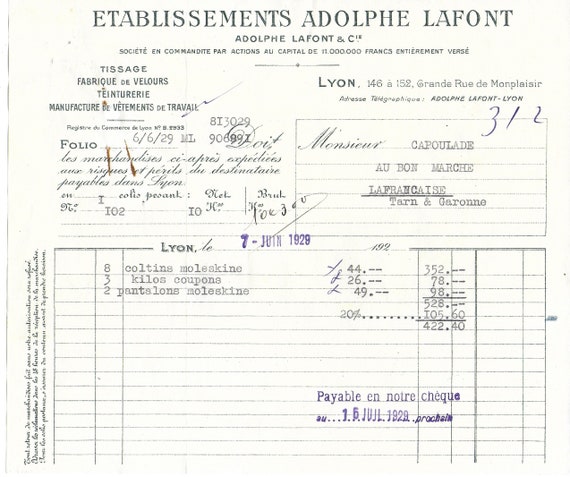 ETABLISSEMENTS ADOLPHE LAFONT
ADOLPHE LAFONT & CIE
SOCIÉTÉ EN COMMANDITE PAR ACTIONS AU CAPITAL DE 11.000.000 FRANCS ENTIÈREMENT VERSÉ
TISSAGE
FABRIQUE DE VELOURS
TEINTURERIE
MANUFACTURE DE VÊTEMENTS DE TRAVAIL
Registre du Commerce de Lyon Nº B. 2933
LYON, 146 à 152, Grande Rue de Monplaisir
Adresse Télégraphique: ADOLPHE LAFONT-LYON
312
8I3029
6/6/29 ML
FOLIO
Doit
les marchandises ci-après expédiées
aux risques et périls du destinataire
payables dans Lyon.
en I colis pesant: Net Brut
Nº I02 I0 Kos Kos
Monsieur CAPOULADE
AU BON MARCHE
LAFRANCAISE
Tarn & Garonne
LYON, le 7 - JUIN 1929 192
8 coltins moleskine 44.-- 352.--
3 kilos coupons 26.-- 78.--
2 pantalons moleskine 49.-- 98.--
528.--
20%..........105.60
422.40
Payable en notre chèque
au 15 JUIL 1929 prochain